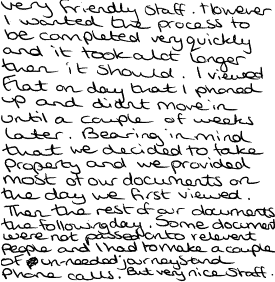 very friendly staff. However
I wanted the process to
be completed very quickly
and it took alot longer
then it should. I viewed
flat on day that I phoned
up and didnt move in
until a couple of weeks
later. Bearing in mind
that we decided to take
Property and we provided
most of our documents on
the day we first viewed.
Then the rest of our documents
the following day. Some document
were not passed on to relevent
people and I had to make a couple
of un-needed journeys and
Phone calls. But very nice Staff.